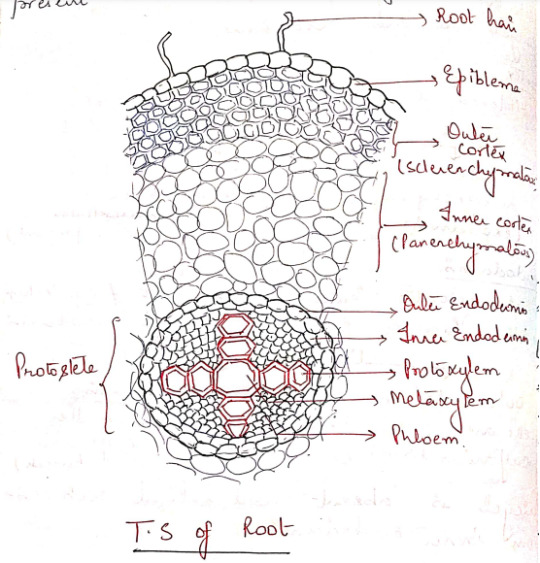 present
Root hair
Epibleme
Outer
cortex
(sclerenchymatous
Inner cortex
(Parenchymatous)
Outer Endodermis
Inner Endodermis
Protostele
Protoxylem
Metaxylem
Phloem
T.S of Root